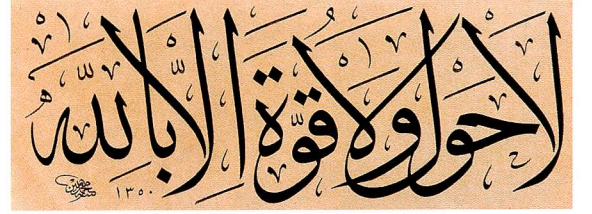 لا حول ولا قوة إلا بالله
١٣٥٠